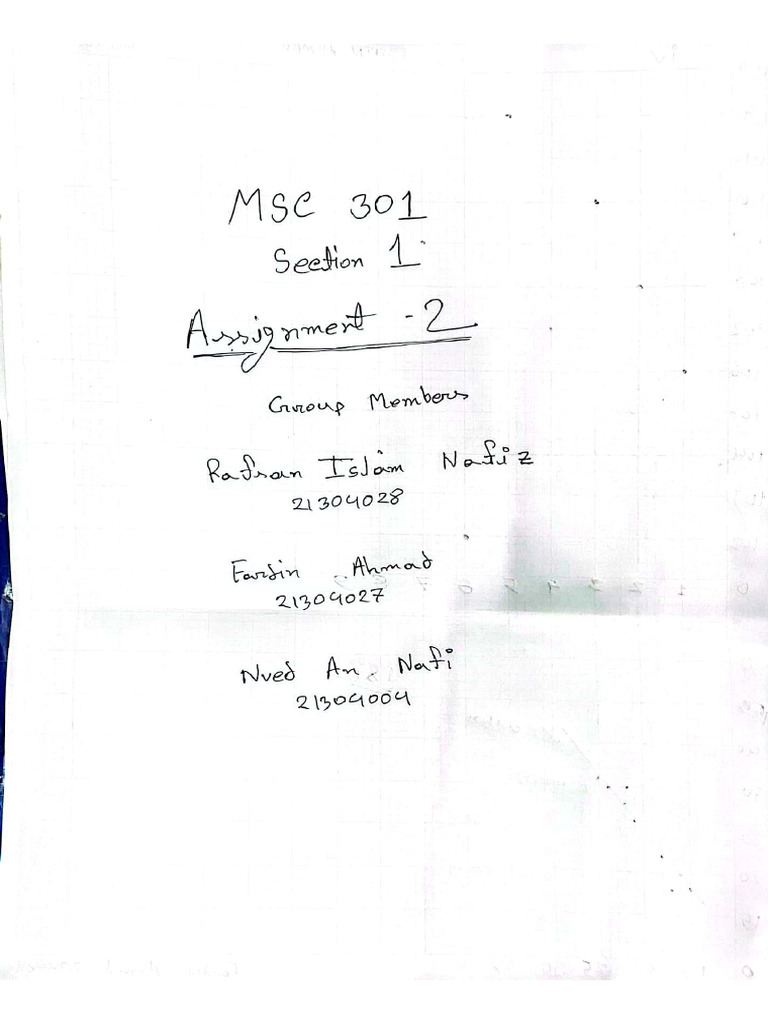 MSC 301
Section 1
Assignment - 2
Group Members
Rafsan Islam Nafiz
21304028
Farsin Ahmad
21304027
Nved An Nafi
21304004